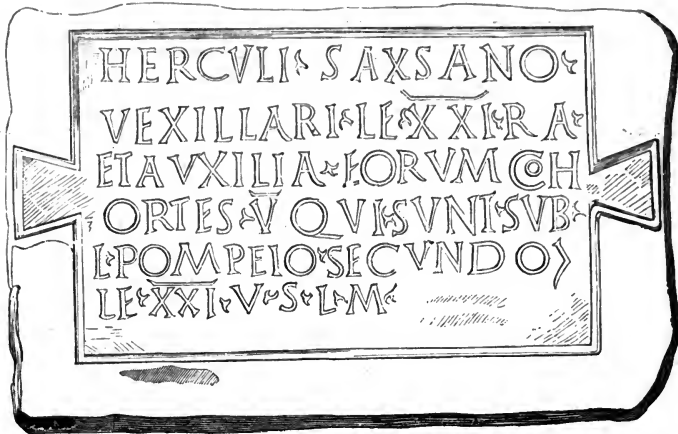 HERCVLI· SAXSANO·
VEXILLARI·LE·XXI·RA·
ETAVXILIA·EORVM COH
ORTES·V QVI·SVNT·SVB·
L·POMPEIO·SECVNDO〉
LE·XXI·V·S·L·M·